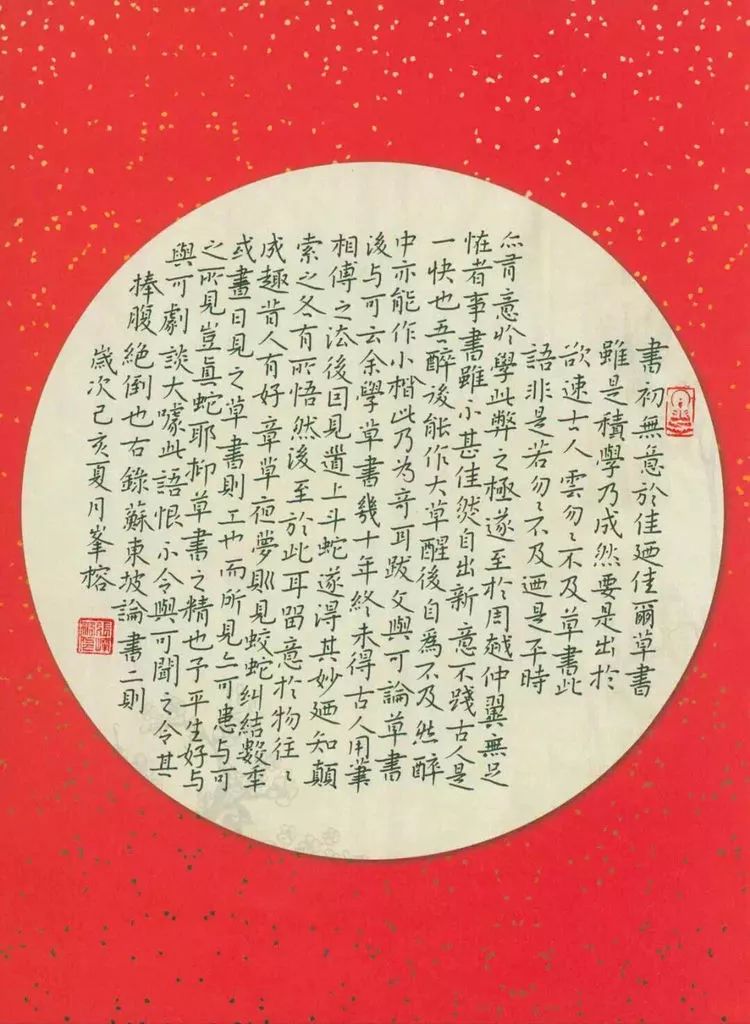 書初無意於佳廼佳爾草書
雖是積學乃成然要是出於
欲速古人雲匆〻不及草書此
語非是若匆〻不及廼是平時
亦有意於學此弊之極遂至於周越仲翼無足
怪者事書雖小甚佳然自出新意不踐古人是
一快也吾醉後能作大草醒後自為不及然醉
中亦能作小楷此乃為奇耳跋文與可論草書
後与可云余學草書幾十年終未得古人用筆
相傳之法後因見道上斗蛇遂得其妙廼知顛
索之各有所悟然後至於此耳留意於物往〻
成趣昔人有好章草夜夢則見蛟蛇糾結數年
或晝日見之草書則工也而所見亦可患与可
之所見豈真蛇耶抑草書之精也予平生好与
與可劇談大噱此語恨不令與可聞之令其
捧腹絕倒也右錄蘇東坡論書二則
歲次己亥夏月峯榕